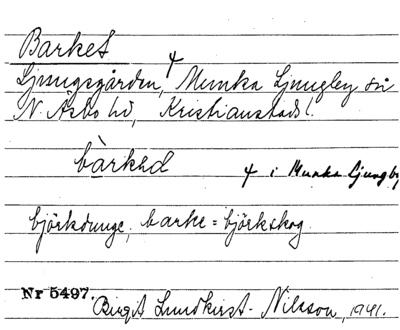 Barket
Ljungsgården, Munka Ljungby sn
N. Åsbo hd, Kristianstads l.
bàrkəd
⸸ i Munka Ljungby
björkdunge, barke = björkskog
Nr 5497.
Birgit Lundkvist-Nilsson, 1941.